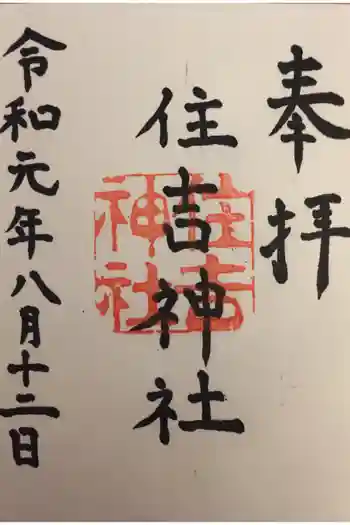 奉拝
住吉神社
住吉神社
令和元年八月十二日